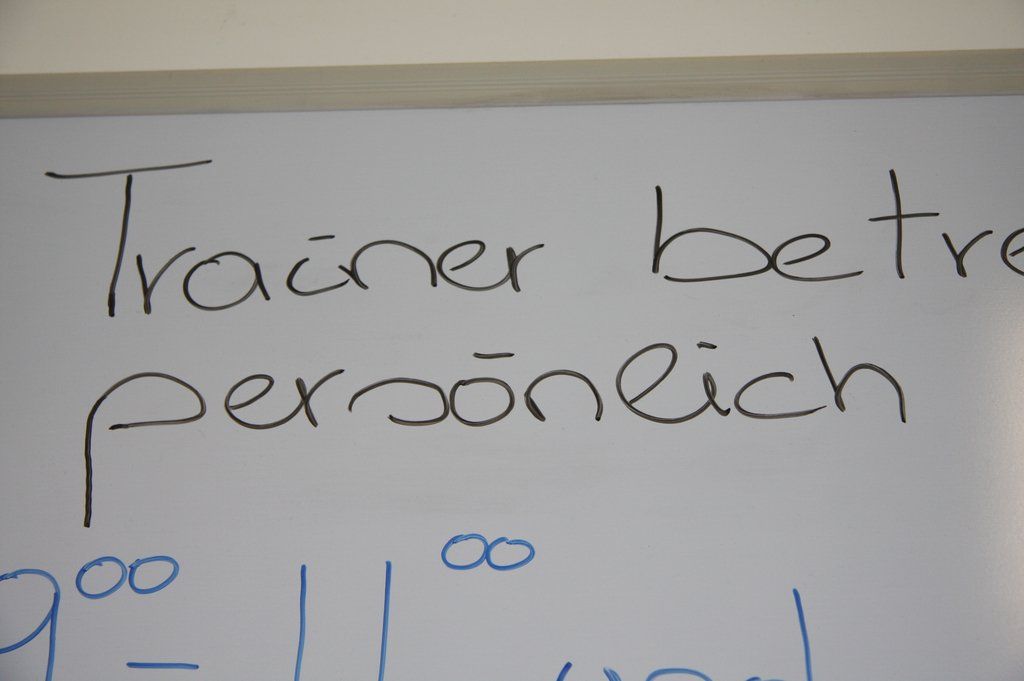 Trainer betre
persönlich
9⁰⁰ – 11⁰⁰ und